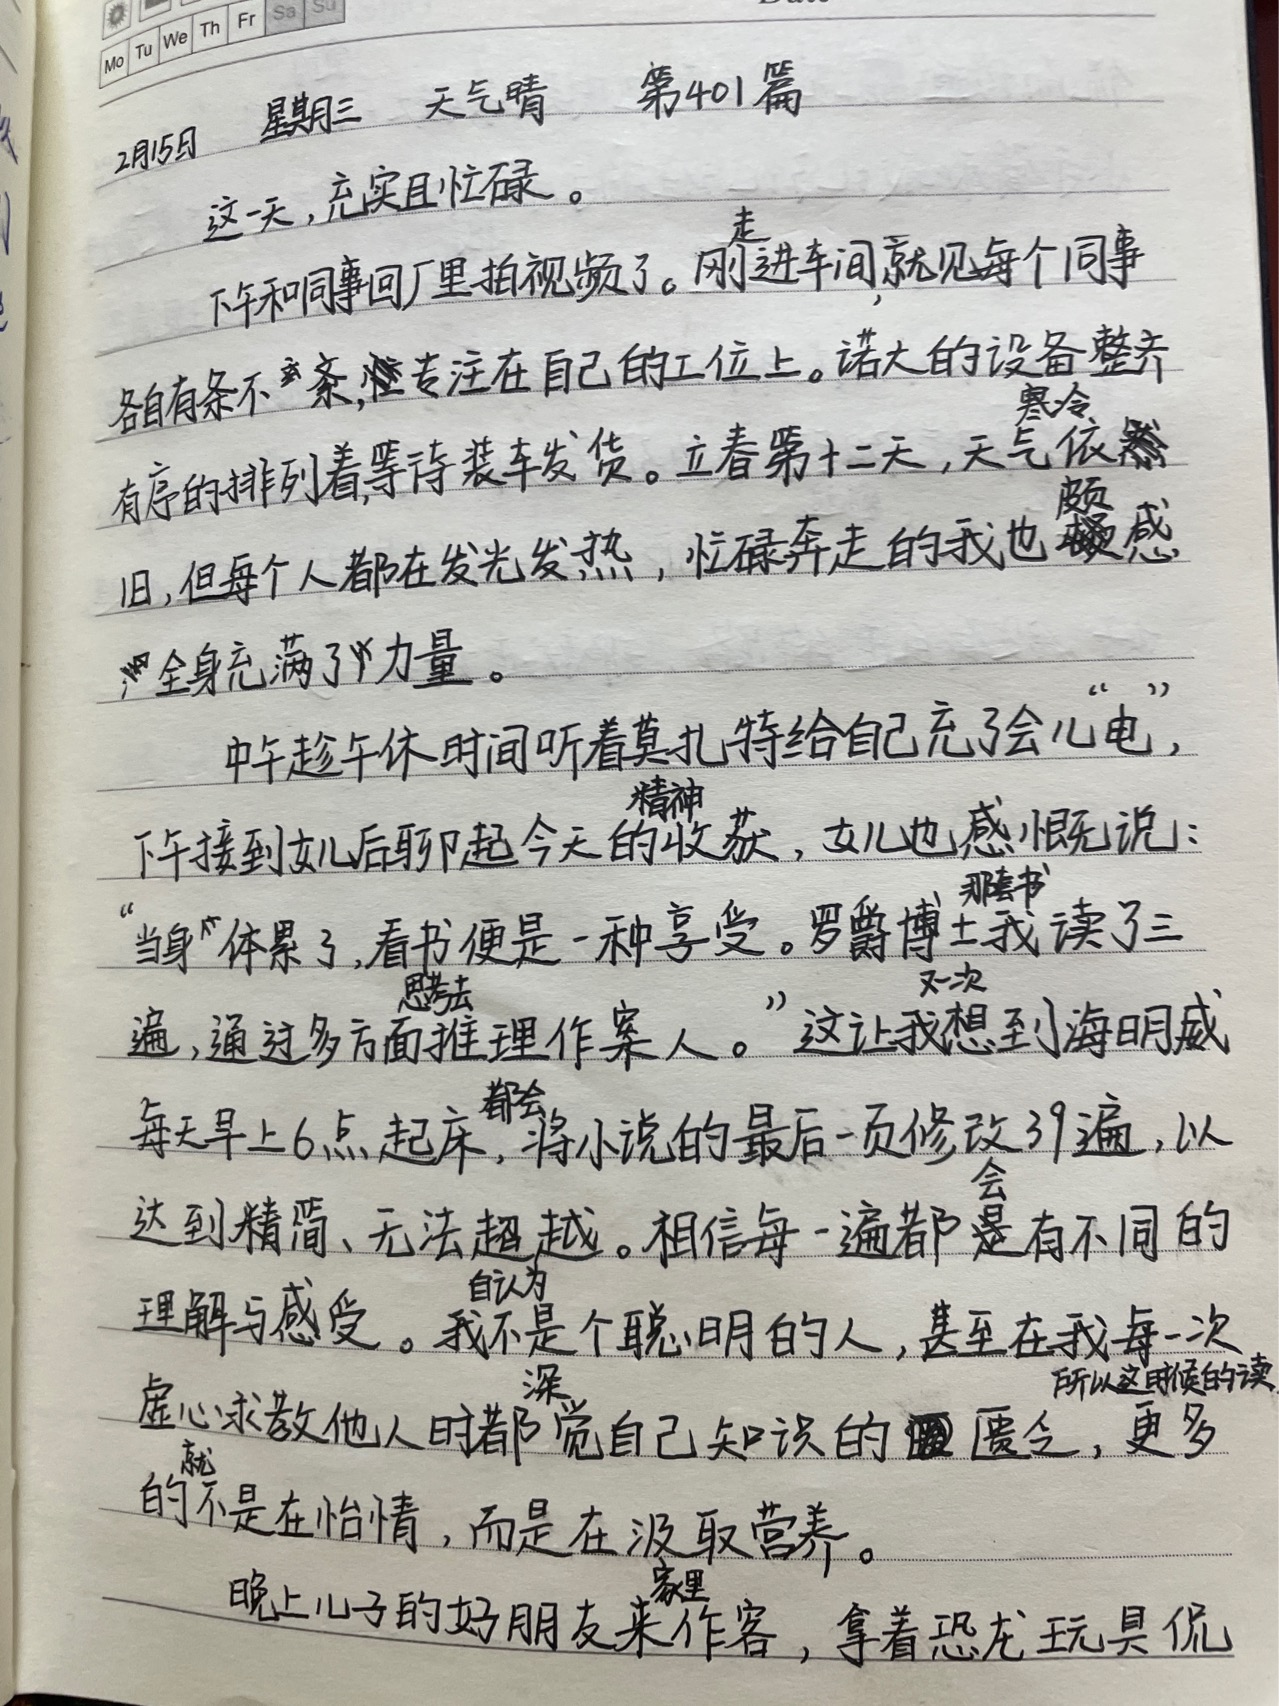 Mo Tu We Th Fr Sa Su
2月15日 星期三 天气晴 第401篇
这一天，充实且忙碌。
下午和同事回厂里拍视频了。刚走进车间，就见每个同事
各自有条不紊，专注在自己的工位上。诺大的设备整齐
有序的排列着，等待装车发货。立春第十二天，天气寒冷依
旧，但每个人都在发光发热，忙碌奔走的我也颇感
全身充满了力量。
中午趁午休时间听着莫扎特给自己充了会儿“电”，
下午接到女儿后聊起今天的精神收获，女儿也感慨说：
“当身体累了，看书便是一种享受。罗爵博士那套书我读了三
遍，通过多方面思考去推理作案人。”这让我又一次想到海明威
每天早上6点起床，都会将小说的最后一页修改39遍，以
达到精简、无法超越。相信每一遍都会有不同的
理解与感受。我自认为不是个聪明的人，甚至在我每一次
虚心求教他人时都深觉自己知识的匮乏，所以这时候的读更多
的就不是在怡情，而是在汲取营养。
晚上儿子的好朋友来家里作客，拿着恐龙玩具侃